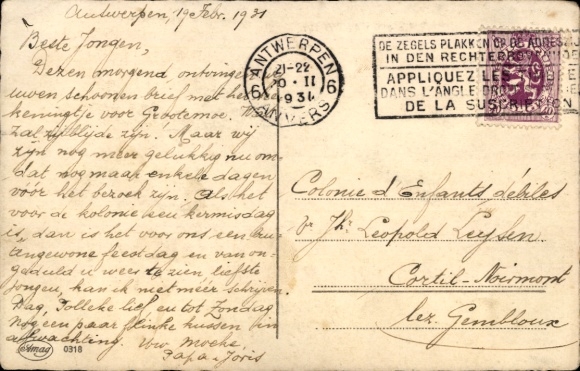 Antwerpen, 19 Febr. 1931
Beste Jongen,
Dezen morgend ontvingen wij
uwen schoonen brief met het
keningtje voor Grootemoe. Wat
zal zij blijde zijn. Maar wij
zijn nog meer gelukkig nu om-
dat nog maar enkele dagen
vóór het bezoek zijn. Als het
voor de kolonie een kermisdag
is, dan is het voor ons een
angewone feestdag en van on-
geduld u weer te zien, liefste
Jongen, kan ik niet meer schrijven
Dag, Polleke lief en tot Zondag
Nog een paar flinke kussen in
afwachting. Uw Moeke.
Papa & Joris
Amag 0318
ANTWERPEN
6 21-22 6
20 · II
1931
ANVERS
DE ZEGELS PLAKKEN OP DE ADRESZIJDE
IN DEN RECHTERBOVENHOEK
APPLIQUEZ LES
DANS L'ANGLE DROIT
DE LA SUSCRIPTION
Colonie d'Enfants débiles
Jh. Leopold Luysen.
Cortil-Noirmont
lez Gembloux